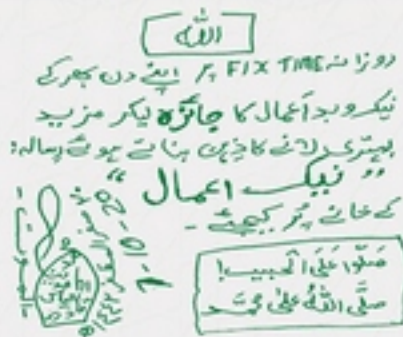 الله
روزانہ FIX TIME پر اپنے دن بھر کے
نیک و بد اعمال کا جائزہ لیکر مزید
بہتری لانے کا ذہن بناتے ہوئے رسالہ:
”نیک اعمال“
کے خانے پُر کیجئے۔
صَلُّوا عَلَی الْحَبِیب!
صلَّی اللہُ علیٰ محمَّد